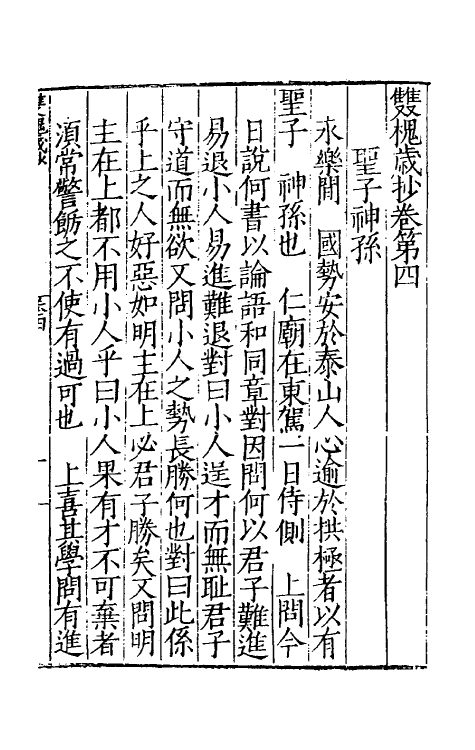 雙槐歲抄卷第四
聖子神孫
永樂間　國勢安於泰山人心逾於拱極者以有
聖子　神孫也　仁廟在東駕一日侍側　上問今
日說何書以論語和同章對因問何以君子難進
易退小人易進難退對曰小人逞才而無耻君子
守道而無欲又問小人之勢長勝何也對曰此係
乎上之人好惡如明主在上必君子勝矣又問明
主在上都不用小人乎曰小人果有才不可棄者
須常警飭之不使有過可也　上喜其學問有進